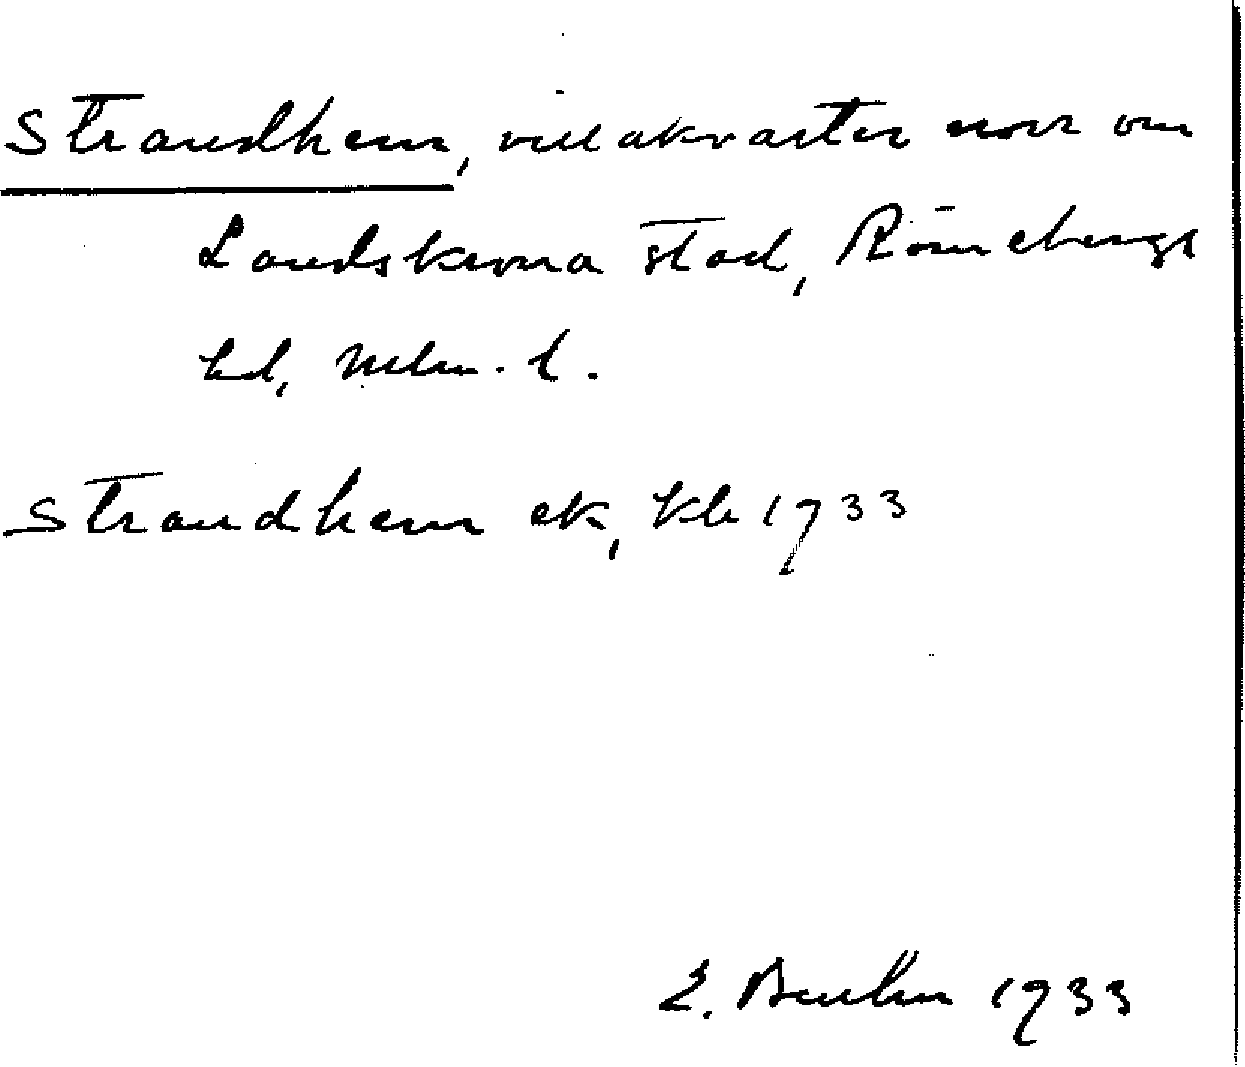 Strandhem, villakvarter norr om
Landskrona stad, Rönnebergs
hd, Mlm. l.
Strandhem ek, Kb 1933
E. 1933